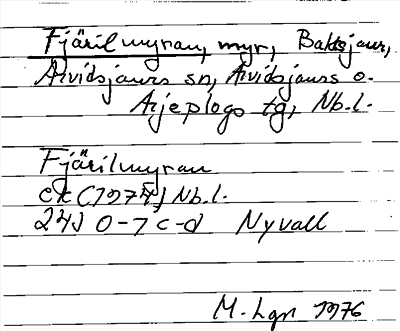 Fjärilmyran, myr, Baktsjaur,
Arvidsjaurs sn, Arvidsjaurs o.
Arjeplogs tg, Nb.l.
Fjärilmyran
ek (1974) Nb.l.
24J 0-1 c-d Nyvall
M. Lgn 1976